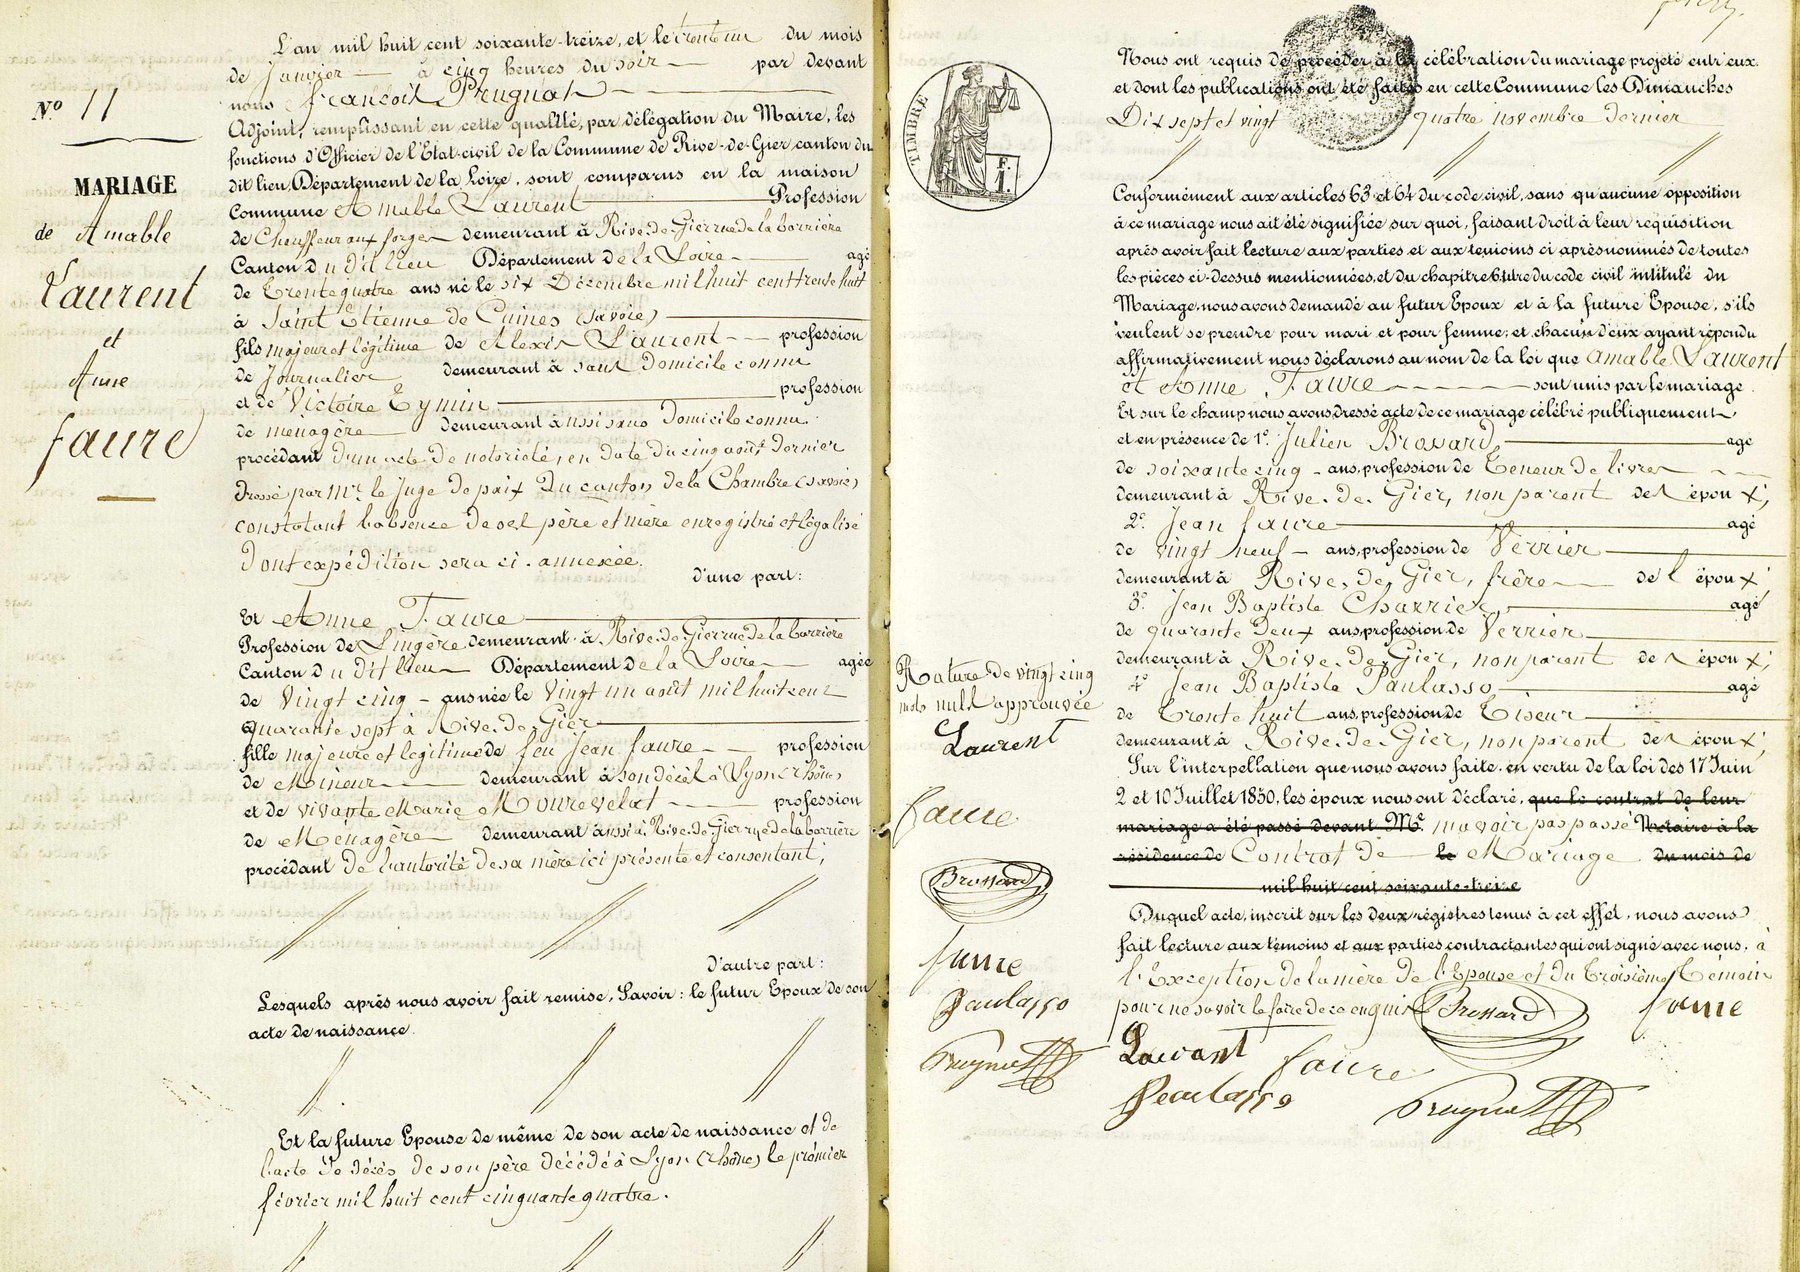 L'an mil huit cent soixante-treize, et le trente un du mois
de Janvier à cinq heures du soir par devant
nous François Prugnat
Adjoint, remplissant en cette qualité, par délégation du Maire, les
fonctions d'Officier de l'Etat-civil de la Commune de Rive-de-Gier canton du
dit lieu, Département de la Loire, sont comparus en la maison
Commune Amable Laurent Profession
de Chauffeur aux forges demeurant à Rive-de-Gier rue de la barrière
Canton Du dit lieu Département de la Loire agé
de trente quatre ans né le six Décembre mil huit cent trente huit
à Saint Etienne de Cuines (Savoie)
fils majeur et légitime de Alexis Laurent profession
de Journalier demeurant à sans Domicile connu
et de Victoire Eymin profession
de ménagère demeurant aussi sans Domicile connu
procédant d'un acte de notoriété, en date du cinq août dernier
dressé par Mr le Juge de paix du canton de la Chambre (Savoie)
constatant l'absence de ses père et mère enregistré et légalisé
dont expédition sera ci-annexée.
d'une part:
Et Anne Faure
Profession de Lingère demeurant à Rive-de-Gier rue de la barrière
Canton Du dit lieu Département de la Loire agée
de vingt cinq ans née le vingt un août mil huit cent
quarante sept à Rive-de-Gier
fille majeure et légitime de feu Jean Faure profession
de Mineur demeurant à son décès à Lyon (Rhône)
et de vivante Marie Mourevelat profession
de Ménagère demeurant aussi à Rive-de-Gier rue de la barrière
procédant de l'autorité de sa mère ici présente et consentant;
d'autre part:
Lesquels après nous avoir fait remise, Savoir: le futur Epoux de son
acte de naissance
Et la future Epouse de même de son acte de naissance et de
l'acte de décès de son père décédé à Lyon (Rhône) le premier
février mil huit cent cinquante quatre.
No 11
MARIAGE
de Amable
Laurent
et
Anne
Faure
TIMBRE
Nous ont requis de procéder à la célébration du mariage projeté entr'eux
et dont les publications ont été faites en cette Commune les Dimanches
Dix sept et vingt quatre novembre dernier
Conformément aux articles 63 et 64 du code civil, sans qu'aucune opposition
à ce mariage nous ait été signifiée sur quoi, faisant droit à leur requisition
après avoir fait lecture aux parties et aux temoins ci après nommés de toutes
les pièces ci-dessus mentionnées, et du chapitre 6 titre du code civil intitulé du
Mariage, nous avons demandé au futur Epoux et à la future Epouse, s'ils
veulent se prendre pour mari et pour femme; et chacun d'eux ayant répondu
affirmativement nous déclarons au nom de la loi que Amable Laurent
et Anne Faure sont unis par le mariage
Et sur le champ nous avons dressé acte de ce mariage célébré publiquement
et en présence de 1o Julien Brossard, agé
de soixante cinq ans, profession de Teneur de livres
demeurant à Rive-de-Gier, non parent des époux;
2o Jean Faure agé
de vingt neuf ans, profession de Verrier
demeurant à Rive-de-Gier, frère de l'époux;
3o Jean Baptiste Charrier, agé
de quarante deux ans, profession de Verrier
demeurant à Rive-de-Gier, non parent des époux;
4o Jean Baptiste Paulasso, agé
de trente huit ans, profession de Tiseur
demeurant à Rive-de-Gier, non parent des époux;
Sur l'interpellation que nous avons faite, en vertu de la loi des 17 Juin
2 et 10 Juillet 1850, les époux nous ont déclaré, que le contrat de leur
mariage a été passé devant Me n'avoir pas passé Notaire à la
résidence de Contrat de le Mariage du mois de
mil huit cent soixante-treize
Duquel acte, inscrit sur les deux régistres tenus à cet effet, nous avons
fait lecture aux témoins et aux parties contractantes qui ont signé avec nous, à
l'Exception de la mère de l'Epouse et du troisième Témoin
pour ne savoir le faire de ce enquis Brossard Faure
Laurent Faure
Paulasso Prugnat
Rature de vingt cinq
mots nuls approuvée
Laurent
Faure
Brossard
Faure
Paulasso
Prugnat